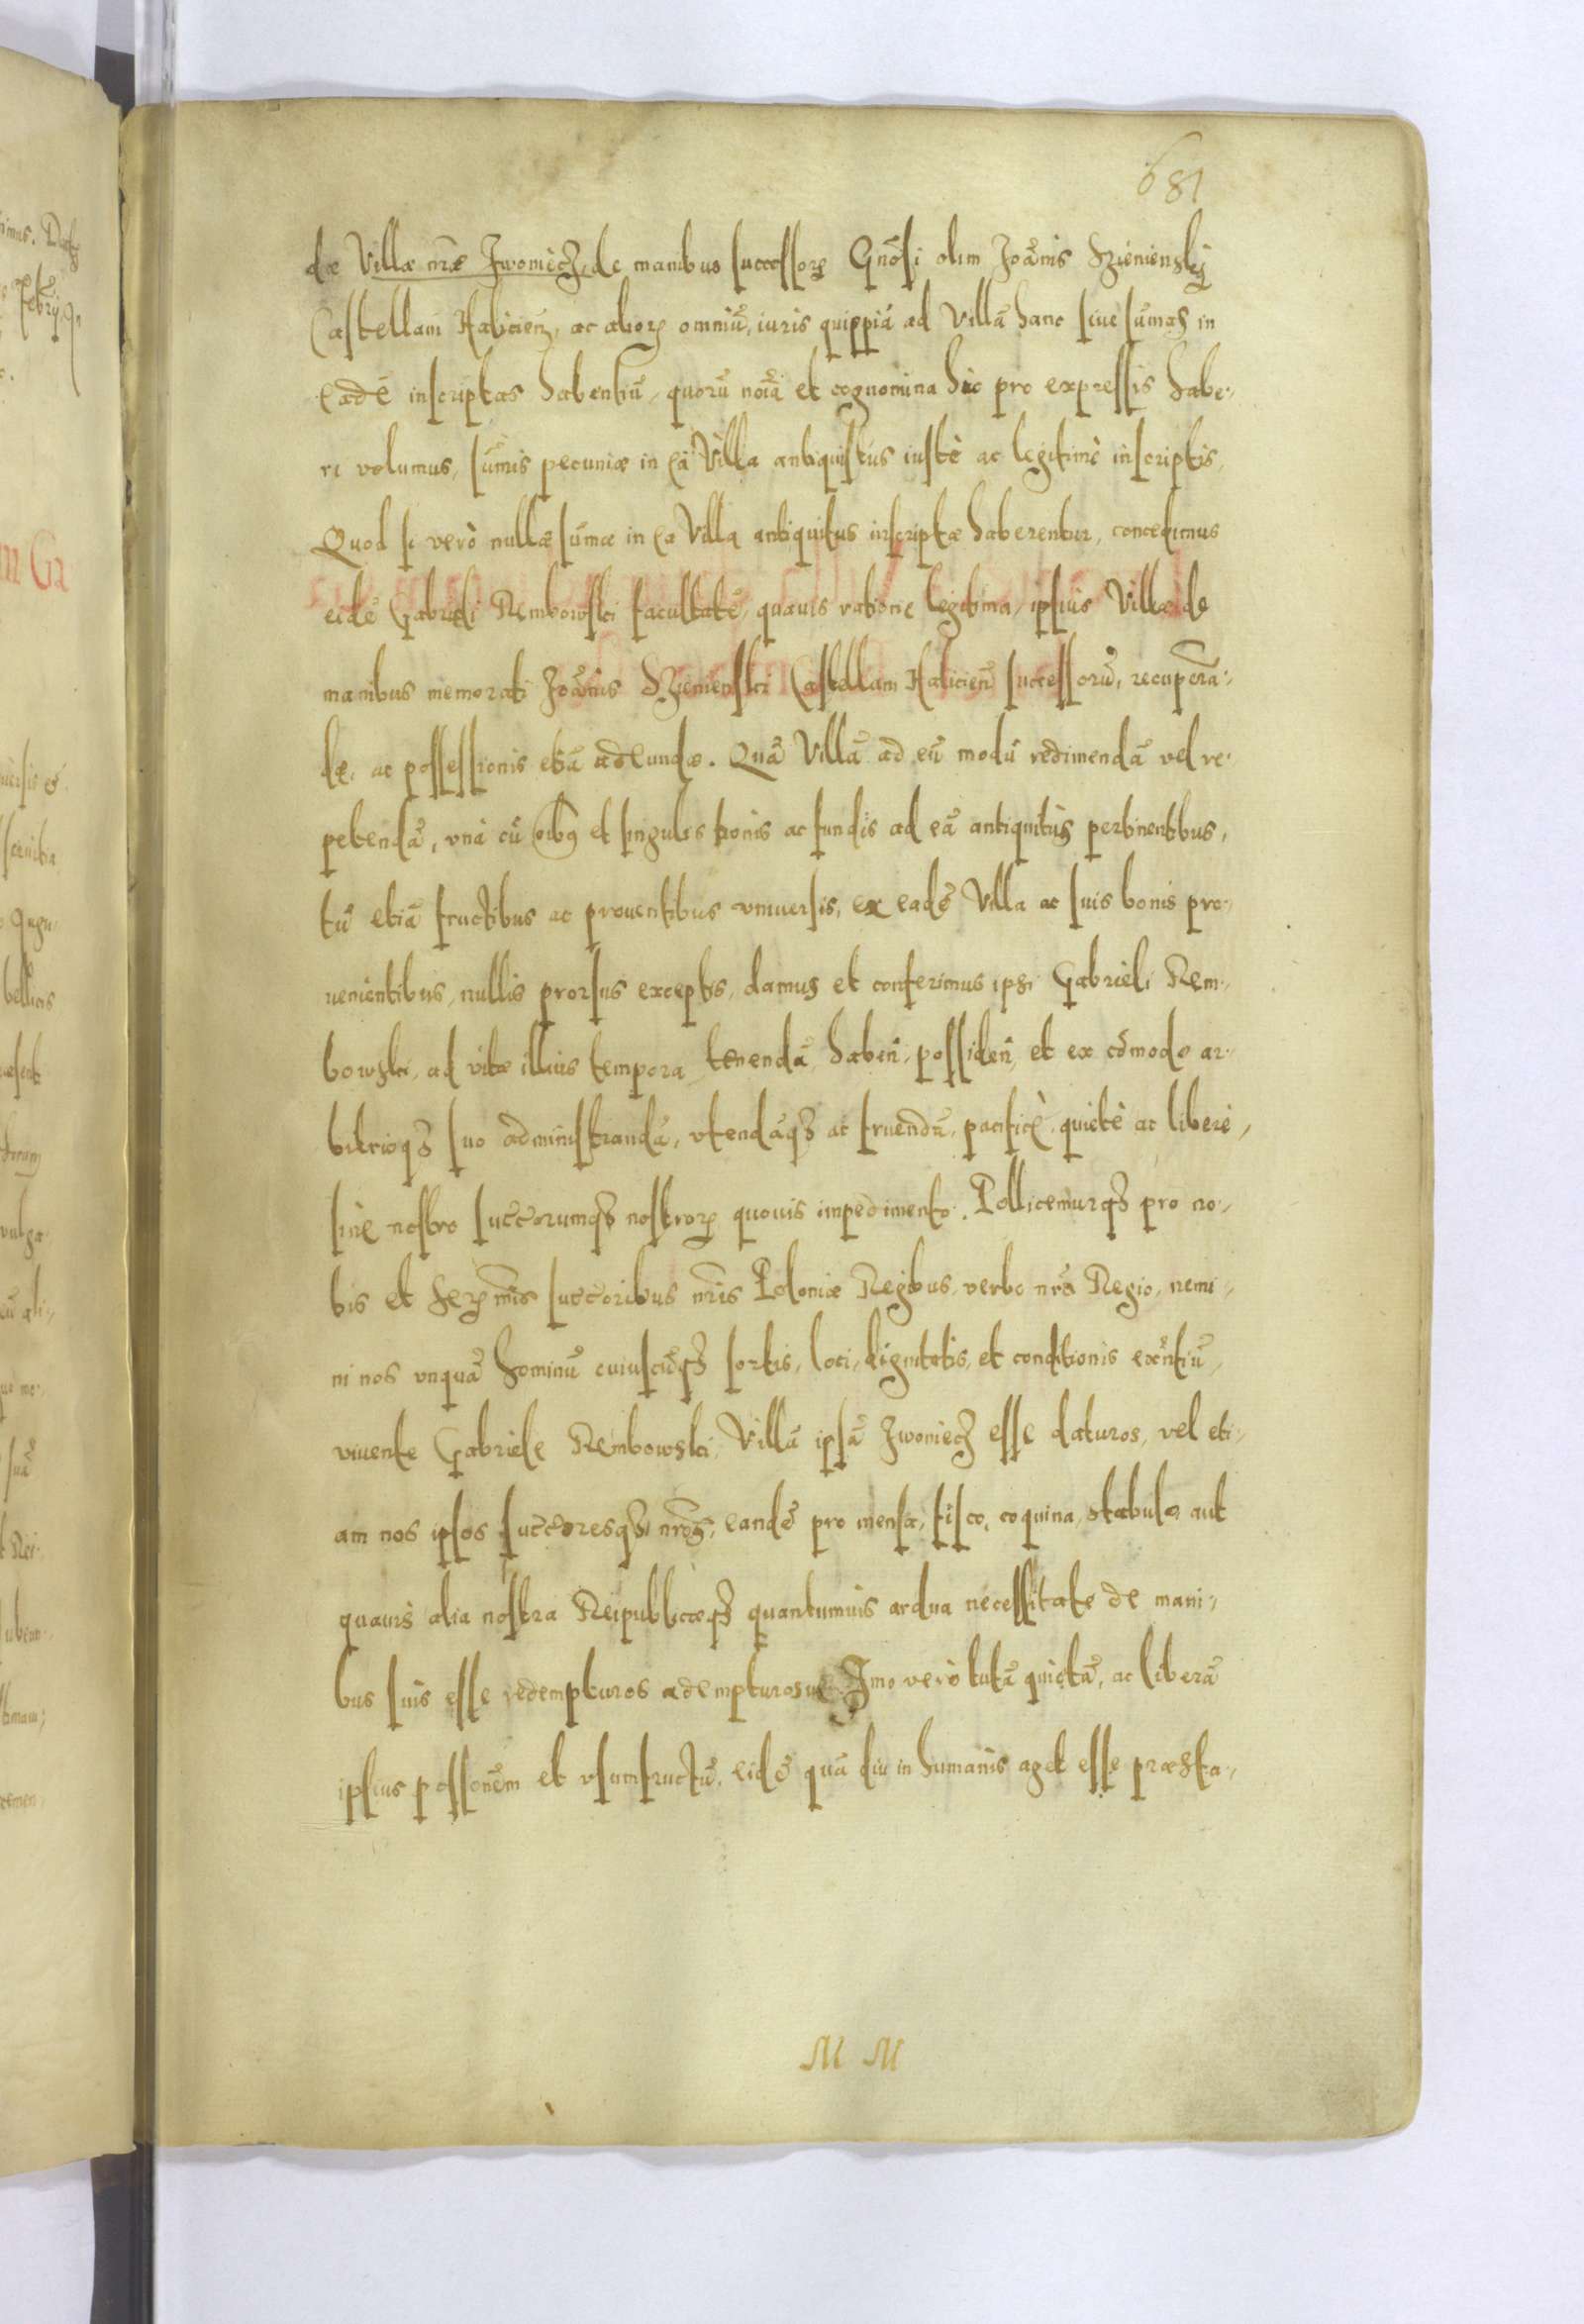 681
dæ Villæ nr̃æ Iwoniecz, de manibus successorꝝ Gnõsi olim Joãnis Szienienskij
Castellani Halicieñ, ac aliorꝝ omniũ, iuris quippiã ad Villã hanc siue sũmas in
eadẽ inscriptas habentiũ, quorũ noĩa et cognomina hic pro expressis habe-
ri volumus, sũmis pecuniæ in eã Villa antiquitus iustè ac legitimè inscriptis,
Quod si verò nullæ sũmæ in ea Villa antiquitus inscriptæ haberentur, concedimus
eidẽ Gabrieli Rembowski facultatẽ, quauis ratione legitima, ipsius Villæ de
manibus memorati Joãnis Szienienski Castellani Halicieñ successorũ, recuperan-
dæ, ac possessionis etiã adeundæ. Quã Villã ad eũ modũ redimendã vel re-
petendã, vnà cũ oĩbꝯ et singulis bonis ac fundis ad eã antiquitùs pertinentibus,
tũ etiã fructibus ac prouentibus vniuersis, ex eadẽ Villa ac suis bonis pro-
uenientibus, nullis prorsus exceptis, damus et conferimus ipsi Gabrieli Rem-
bowski, ad vitæ illius tempora tenendã, habeñ, possideñ, et ex cõmodo ar-
bitrioqꝫ suo administrandã, vtendãqꝫ ac fruendã, pacificè, quietè ac liberè,
sine nostro succorumqꝫ nostrorꝝ quouis impedimento. Pollicemurqꝫ pro no-
bis et Serꝝmis succoribus nr̃is Poloniæ Regibus, verbo nr̃o Regio, nemi-
ni nos vnquã hominũ cuiuscũqꝫ sortis, loci, dignitatis, et conditionis exñtiũ,
viuente Gabriele Rembowski, Villã ipsã Iwoniecz esse daturos, vel eti-
am nos ipsos succoresqꝫ nr̃os, eandẽ pro mensa, fisco, coquina, stabulo aut
quauis alia nostra Reipublicæqꝫ quantumuis ardua necessitate de mani-
bus suis esse redempturos adempturosuè. Imo verò tutã quietã, ac liberã
ipsius possonẽm et vsumfructũ, eidẽ quã diu in humanis aget esse præsta-
M M